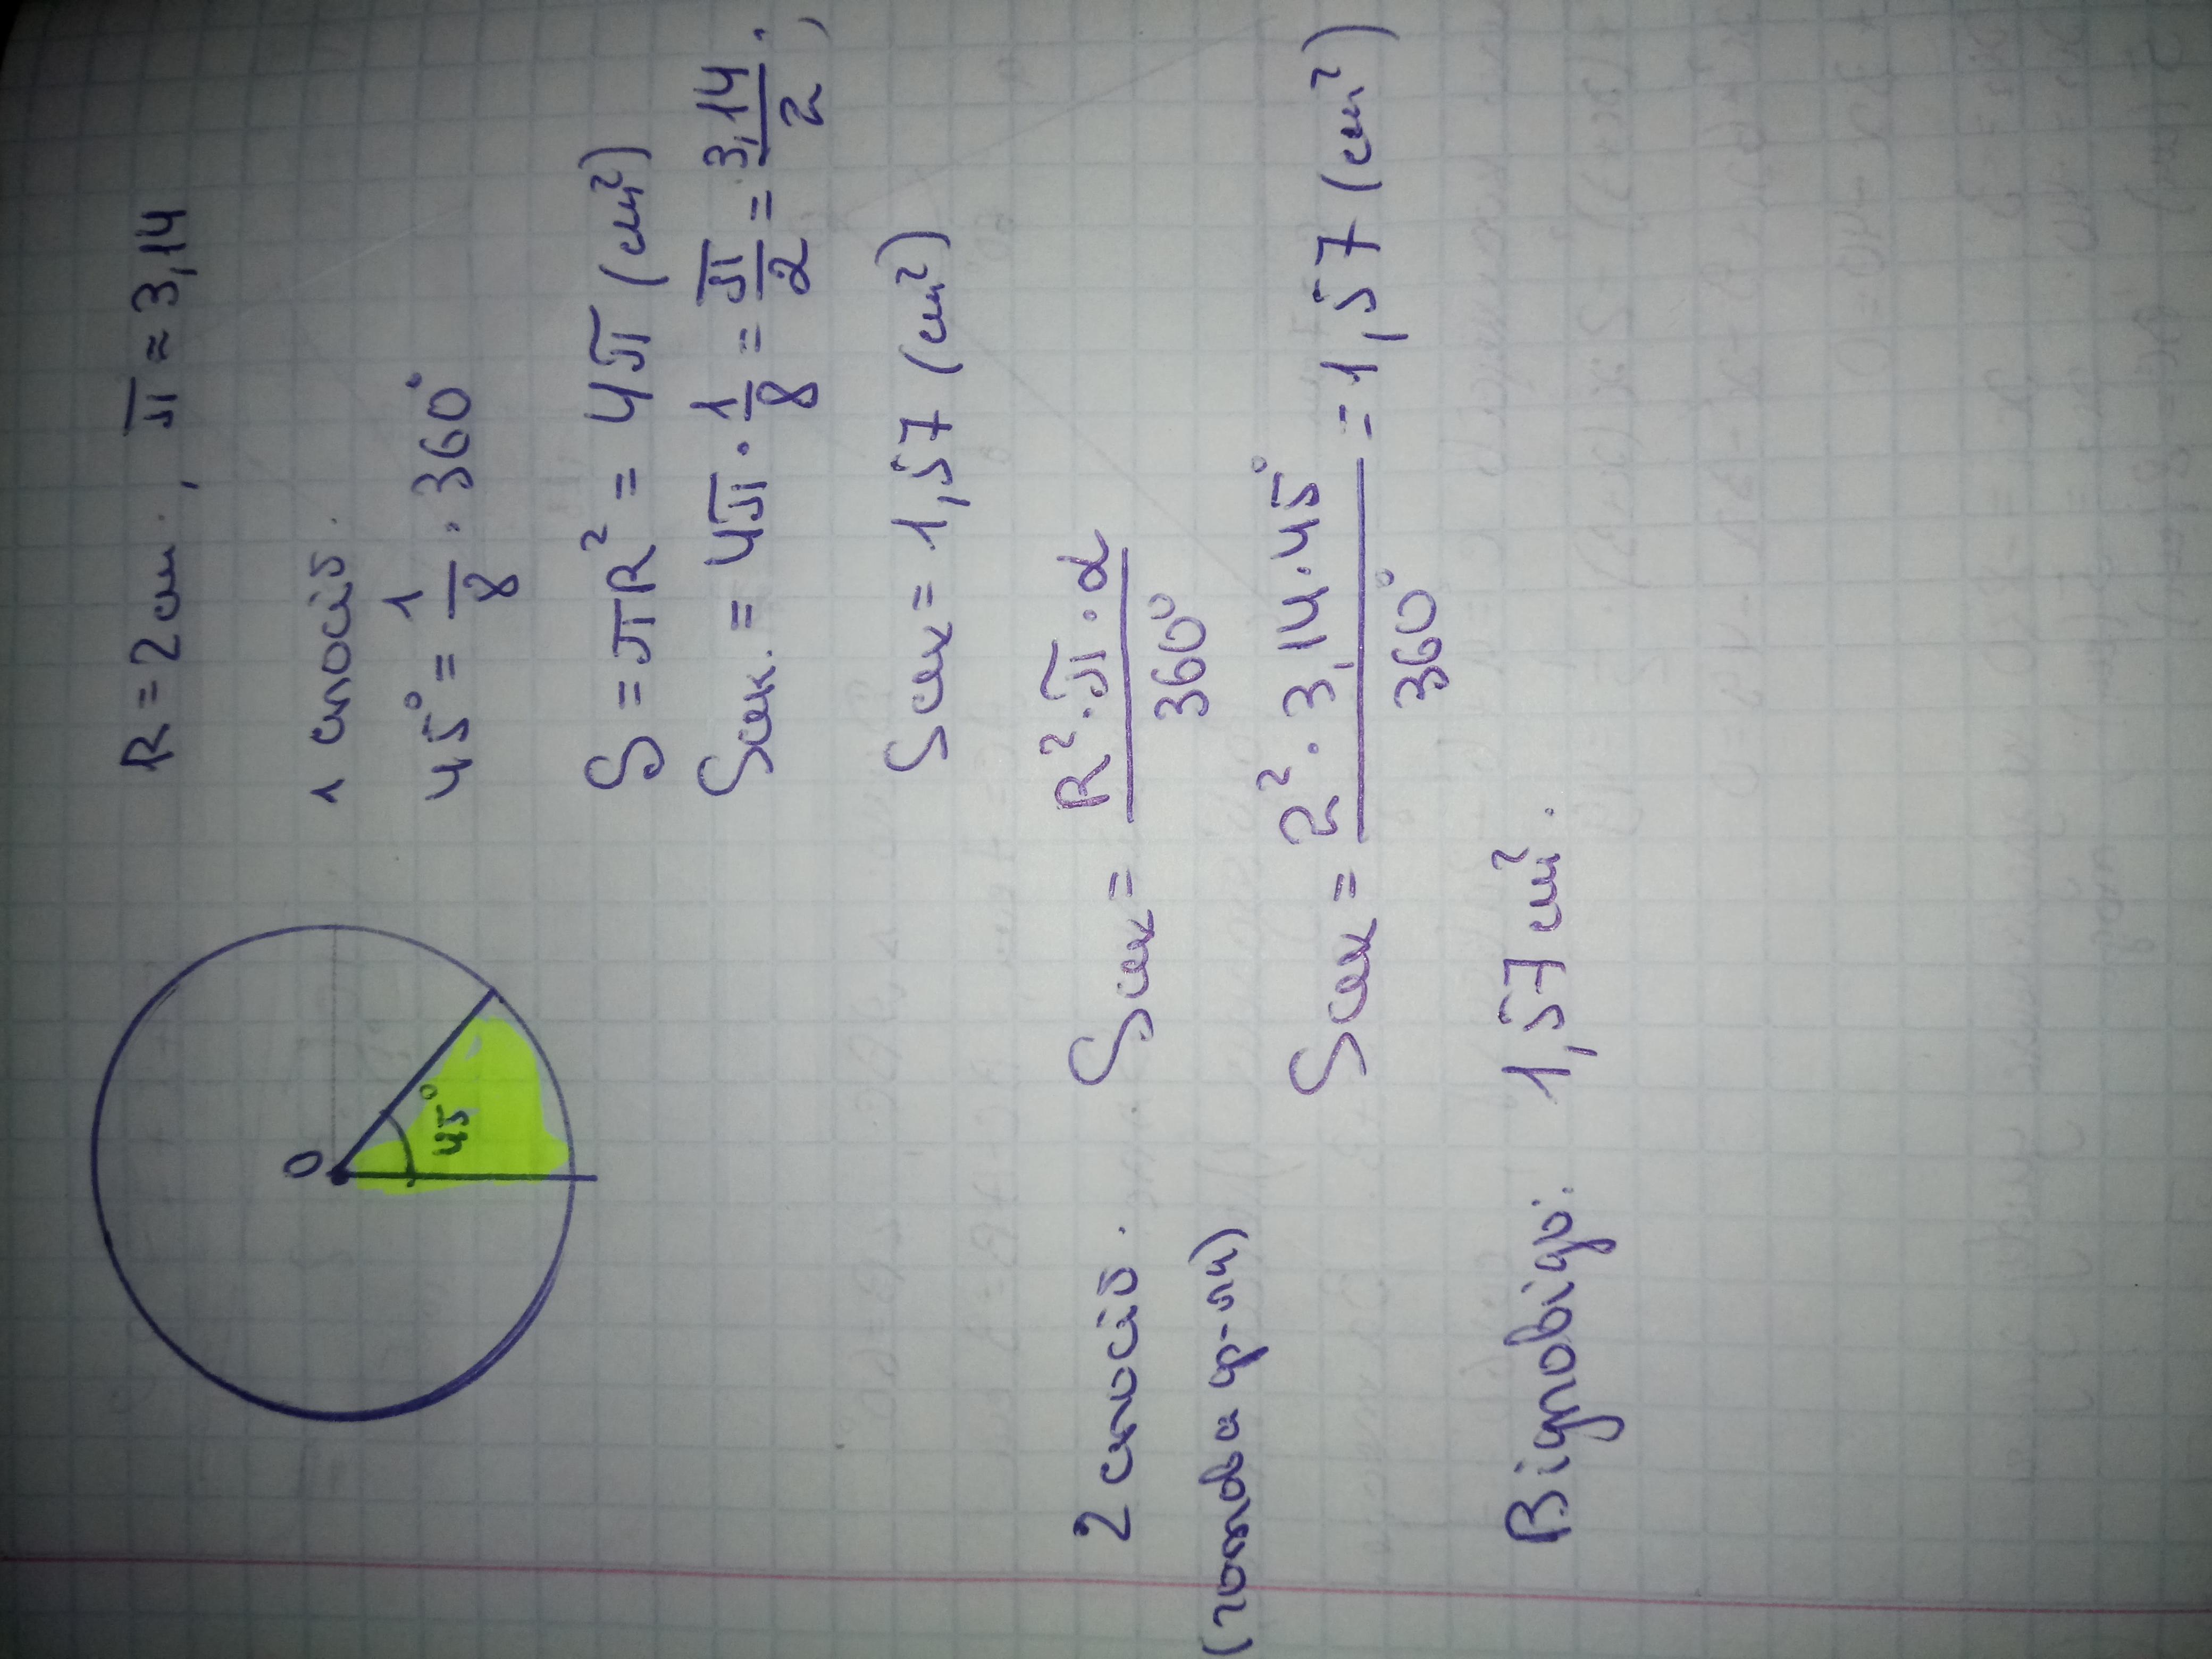 R = 2 см., π ≈ 3,14
O
45°
1 спосіб.
45° = 1/8 · 360°
S = πR² = 4π (см²)
Sсек. = 4π · 1/8 = π/2 = 3,14/2;
Sсек = 1,57 (см²)
2 спосіб. Sсек = R² · π · α / 360°
(готова ф-ла)
Sсек = 2² · 3,14 · 45° / 360° = 1,57 (см²)
Відповідь: 1,57 см².